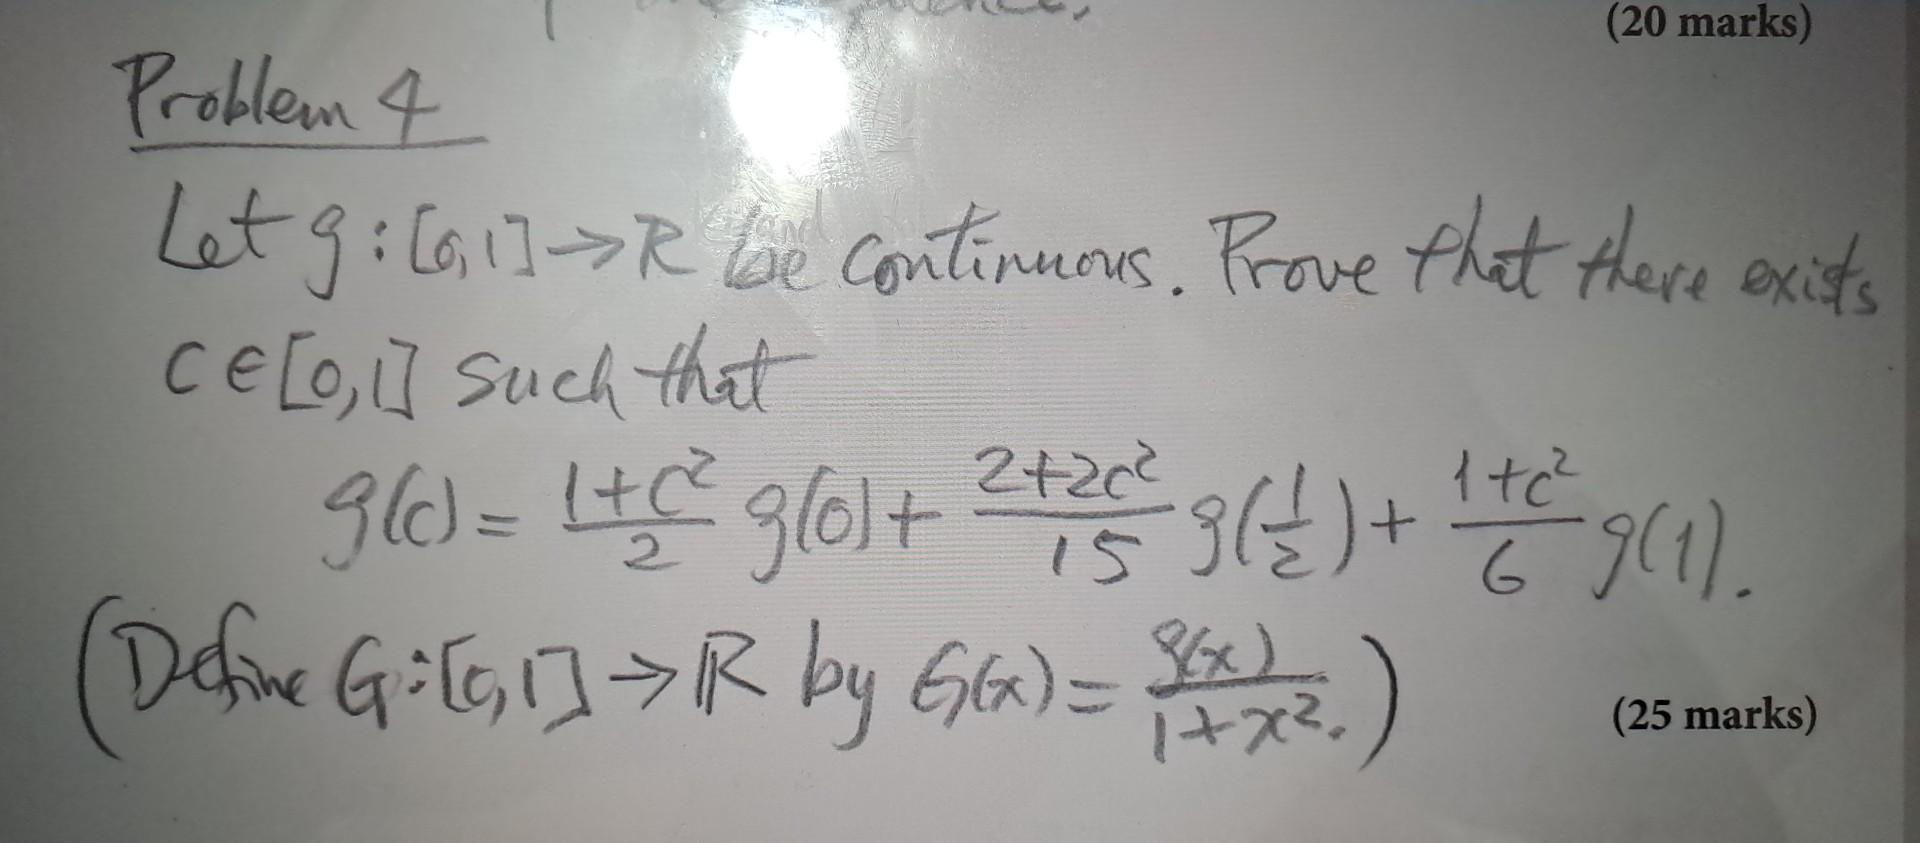 (20 marks)
Problem 4
Let g : [0,1] → ℝ be continuous. Prove that there exists
c ∈ [0,1] such that
g(c) = \frac{1+c^2}{2} g(0) + \frac{2+2c^2}{15} g(\frac{1}{2}) + \frac{1+c^2}{6} g(1).
(Define G : [0,1] → ℝ by G(x) = \frac{g(x)}{1+x^2}.)
(25 marks)